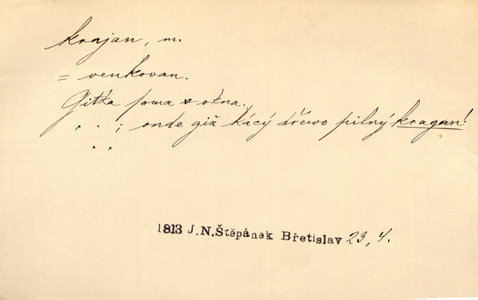 krajan, m.
= venkovan.
Gitka sama s okna.
. . ; onde giž kácý dřjwo pilný kragan!
. .
1813 J.N.Štěpánek Břetislav 23, 4.